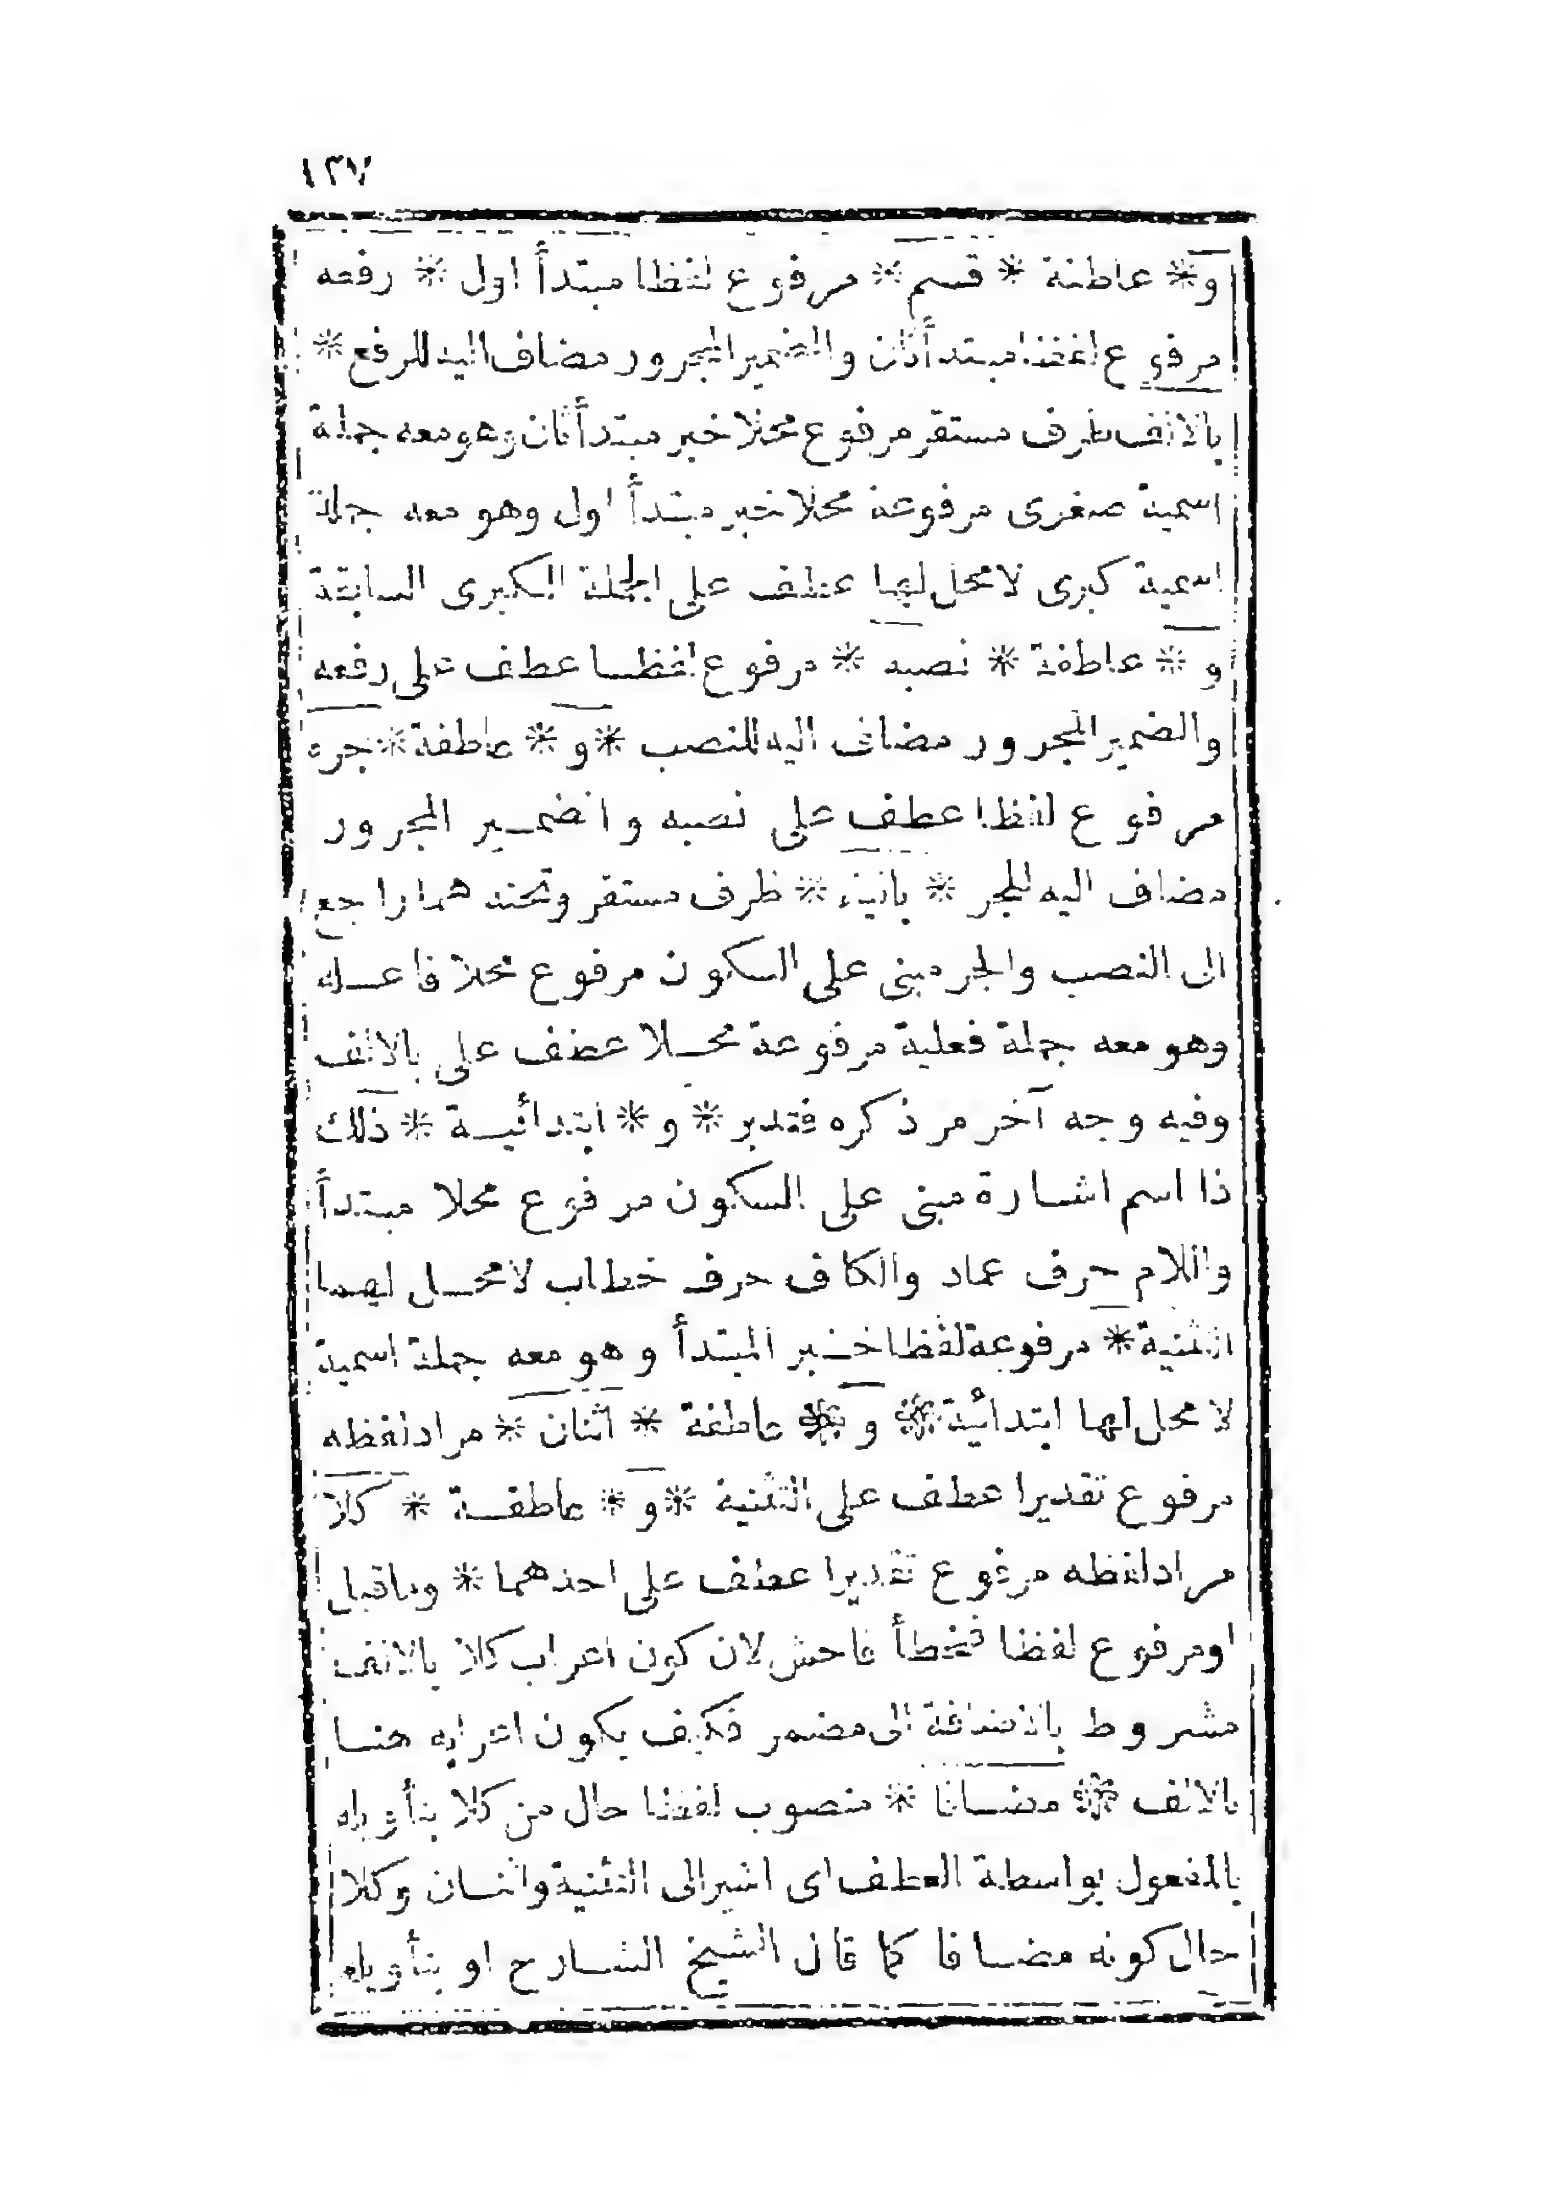 ١٣٧
و * عاطفة * قسم * مرفوع لفظا مبتدأ اول * رفعه
مرفوع لفظا مبتدأ ثان والضمير المجرور مضاف اليه للرفع *
بالالف ظرف مستقر مرفوع محلا خبر مبتدأ ثان وهو معه جملة
اسمية صغرى مرفوعة محلا خبر مبتدأ اول وهو معه جملة
اسمية كبرى لا محل لها عطف على الجملة الكبرى السابقة
و * عاطفة * نصبه * مرفوع لفظا عطف على رفعه
والضمير المجرور مضاف اليه للنصب * و * عاطفة * جره
مرفوع لفظا عطف على نصبه والضمير المجرور
مضاف اليه للجر * بالياء * ظرف مستقر وتحته هما راجع
الى النصب والجر مبنى على السكون مرفوع محلا فاعله
وهو معه جملة فعلية مرفوعة محلا عطف على بالالف
وفيه وجه آخر مر ذكره فتدبر * و * ابتدائية * ذلك
ذا اسم اشارة مبنى على السكون مرفوع محلا مبتدأ
واللام حرف عماد والكاف حرف خطاب لا محل لهما
التثنية * مرفوعة لفظا خبر المبتدأ وهو معه جملة اسمية
لا محل لها ابتدائية * و * عاطفة * اثنان * مراد لفظه
مرفوع تقديرا عطف على التثنية * و * عاطفة * كلا
مراد لفظه مرفوع تقديرا عطف على احدهما * وما قيل
او مرفوع لفظا فخطأ فاحش لان كون اعراب كلا بالالف
مشروط بالاضافة الى مضمر فكيف يكون اعرابه هنا
بالالف * مضافا * منصوب لفظا حال من كلا بتأويله
بالمفعول بواسطة العطف اى اشير الى التثنية واثنان وكلا
حال كونه مضافا كما قال الشيخ الشارح او بتأويله